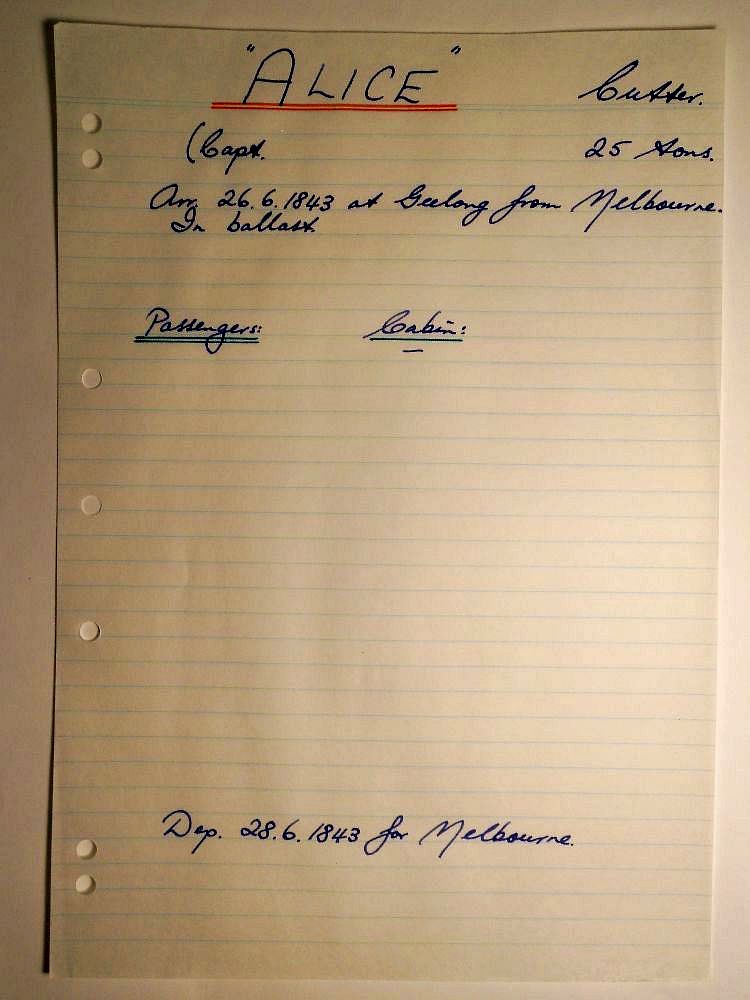 "ALICE" Cutter.
(Capt. 25 tons.
Arr. 26.6.1843 at Geelong from Melbourne.
In ballast.
Passengers: Cabin:
—
Dep. 28.6.1843 for Melbourne.